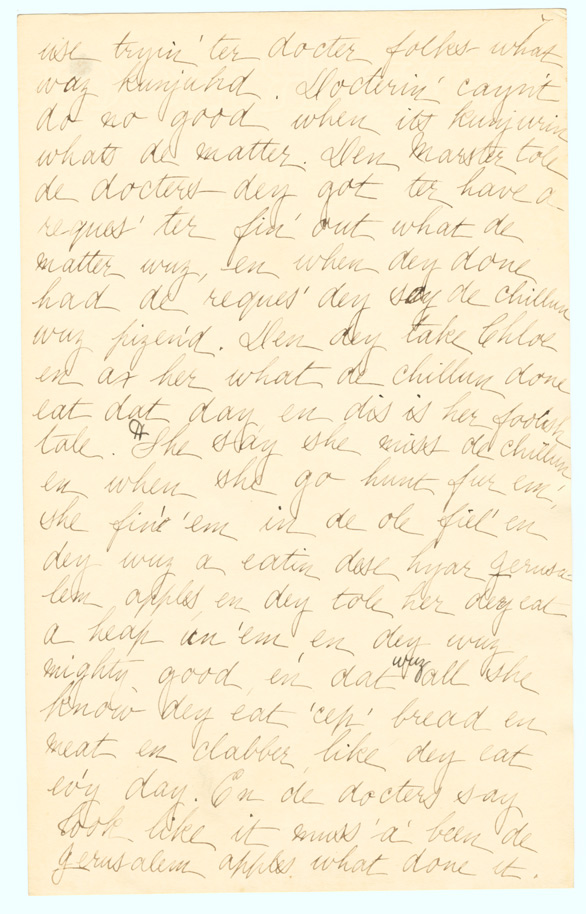 use tryin' ter docter folks what
waz kunjuhd. Docterin' cayn't
do no good when its kunjurin
whats de matter. Den Marster tole
de docters dey got ter have a
reques' ter fin' out what de
matter wuz, en when dey done
had de reques' dey say de chillun
wuz pizen'd. Den dey take Chloe
en ax her what de chillun done
eat dat day, en dis is her foolish
tale. She say she miss de chillun
en when she go hunt fur em',
she fin' 'em in de ole fiel' en
dey wuz a eatin dese hyar gerusa-
lem apples, en dey tole her dey eat
a heap un 'em, en dey wuz
mighty good, en' dat wuz all she
know dey eat 'cep' bread en
meat en clabber, like dey eat
ev'y day. En de docters say
look like it muss 'a' been de
gerusalem apples what done it.